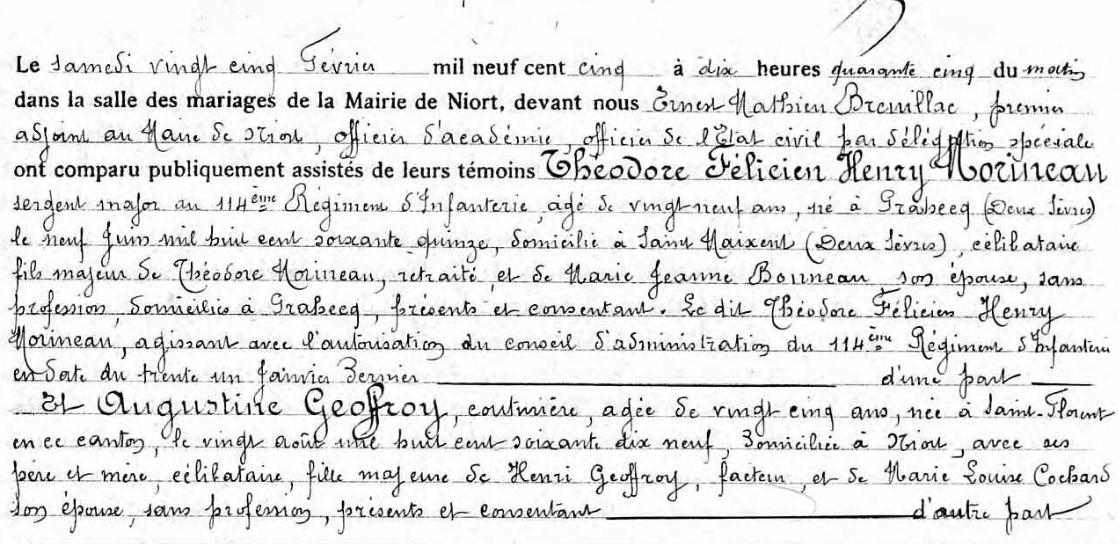 Le samedi vingt cinq Février mil neuf cent cinq à dix heures quarante cinq du matin
dans la salle des mariages de la Mairie de Niort, devant nous Ernest Mathieu Breuillac, premier
adjoint au Maire de Niort, officier d'académie, officier de l'Etat civil par délégation spéciale
ont comparu publiquement assistés de leurs témoins Théodore Félicien Henry Morineau
sergent major au 114ème Régiment d'Infanterie, agé de vingt neuf ans, né à Prahecq (Deux Sèvres)
le neuf Juin mil huit cent soixante quinze, domicilié à Saint Maixent (Deux Sèvres), célibataire
fils majeur de Théodore Morineau, retraité, et de Marie Jeanne Bonneau, son épouse, sans
profession, domiciliés à Prahecq, présents et consentant. Le dit Théodore Félicien Henry
Morineau, agissant avec l'autorisation du conseil d'administration du 114ème Régiment d'Infanterie
en date du trente un Janvier dernier d'une part
Et Augustine Geoffroy, couturière, agée de vingt cinq ans, née à Saint-Florent
en ce canton, le vingt août mil huit cent soixante dix neuf, domiciliée à Niort, avec ses
père et mère, célibataire, fille majeure de Henri Geoffroy, facteur, et de Marie Louise Cochard
son épouse, sans profession, présents et consentant d'autre part